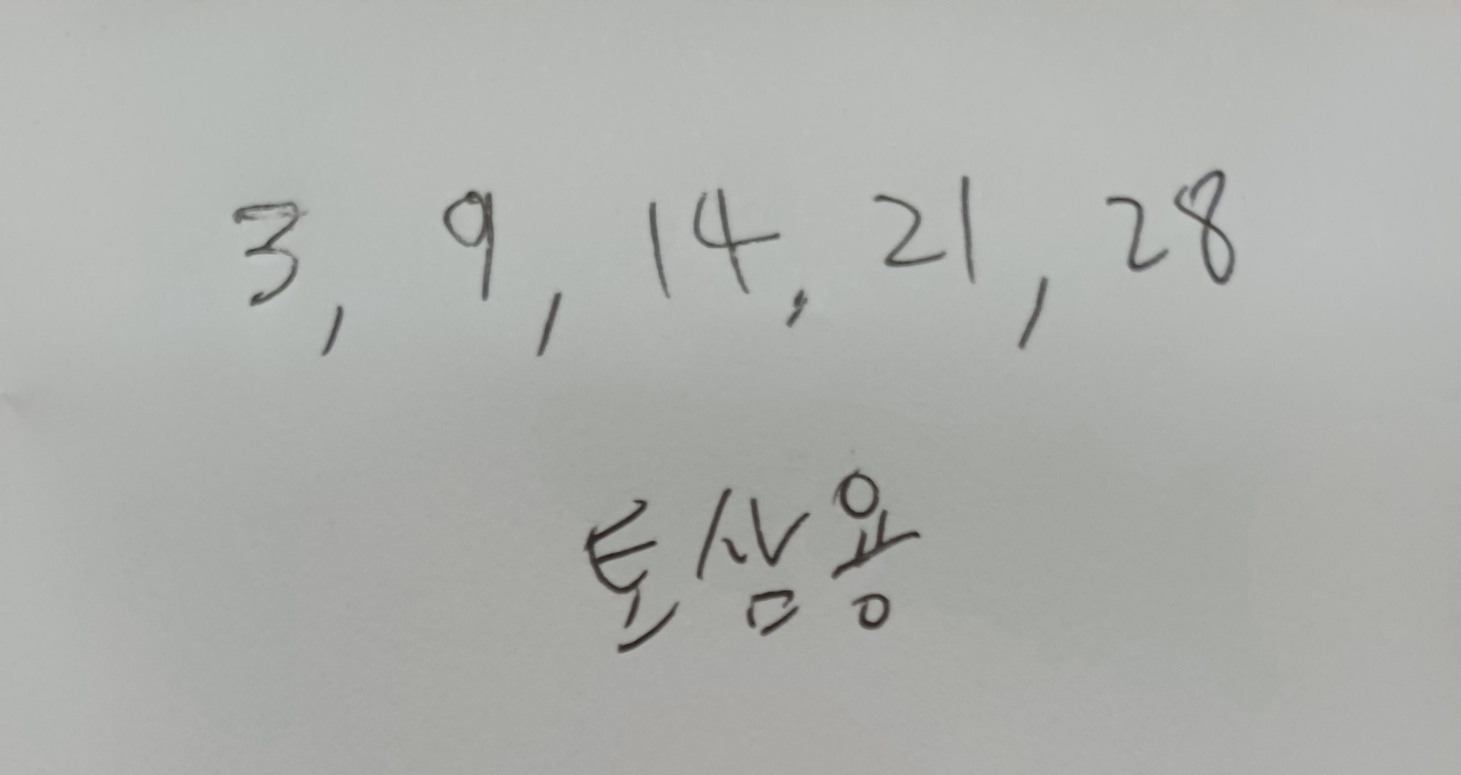 3, 9, 14, 21, 28
토삼용